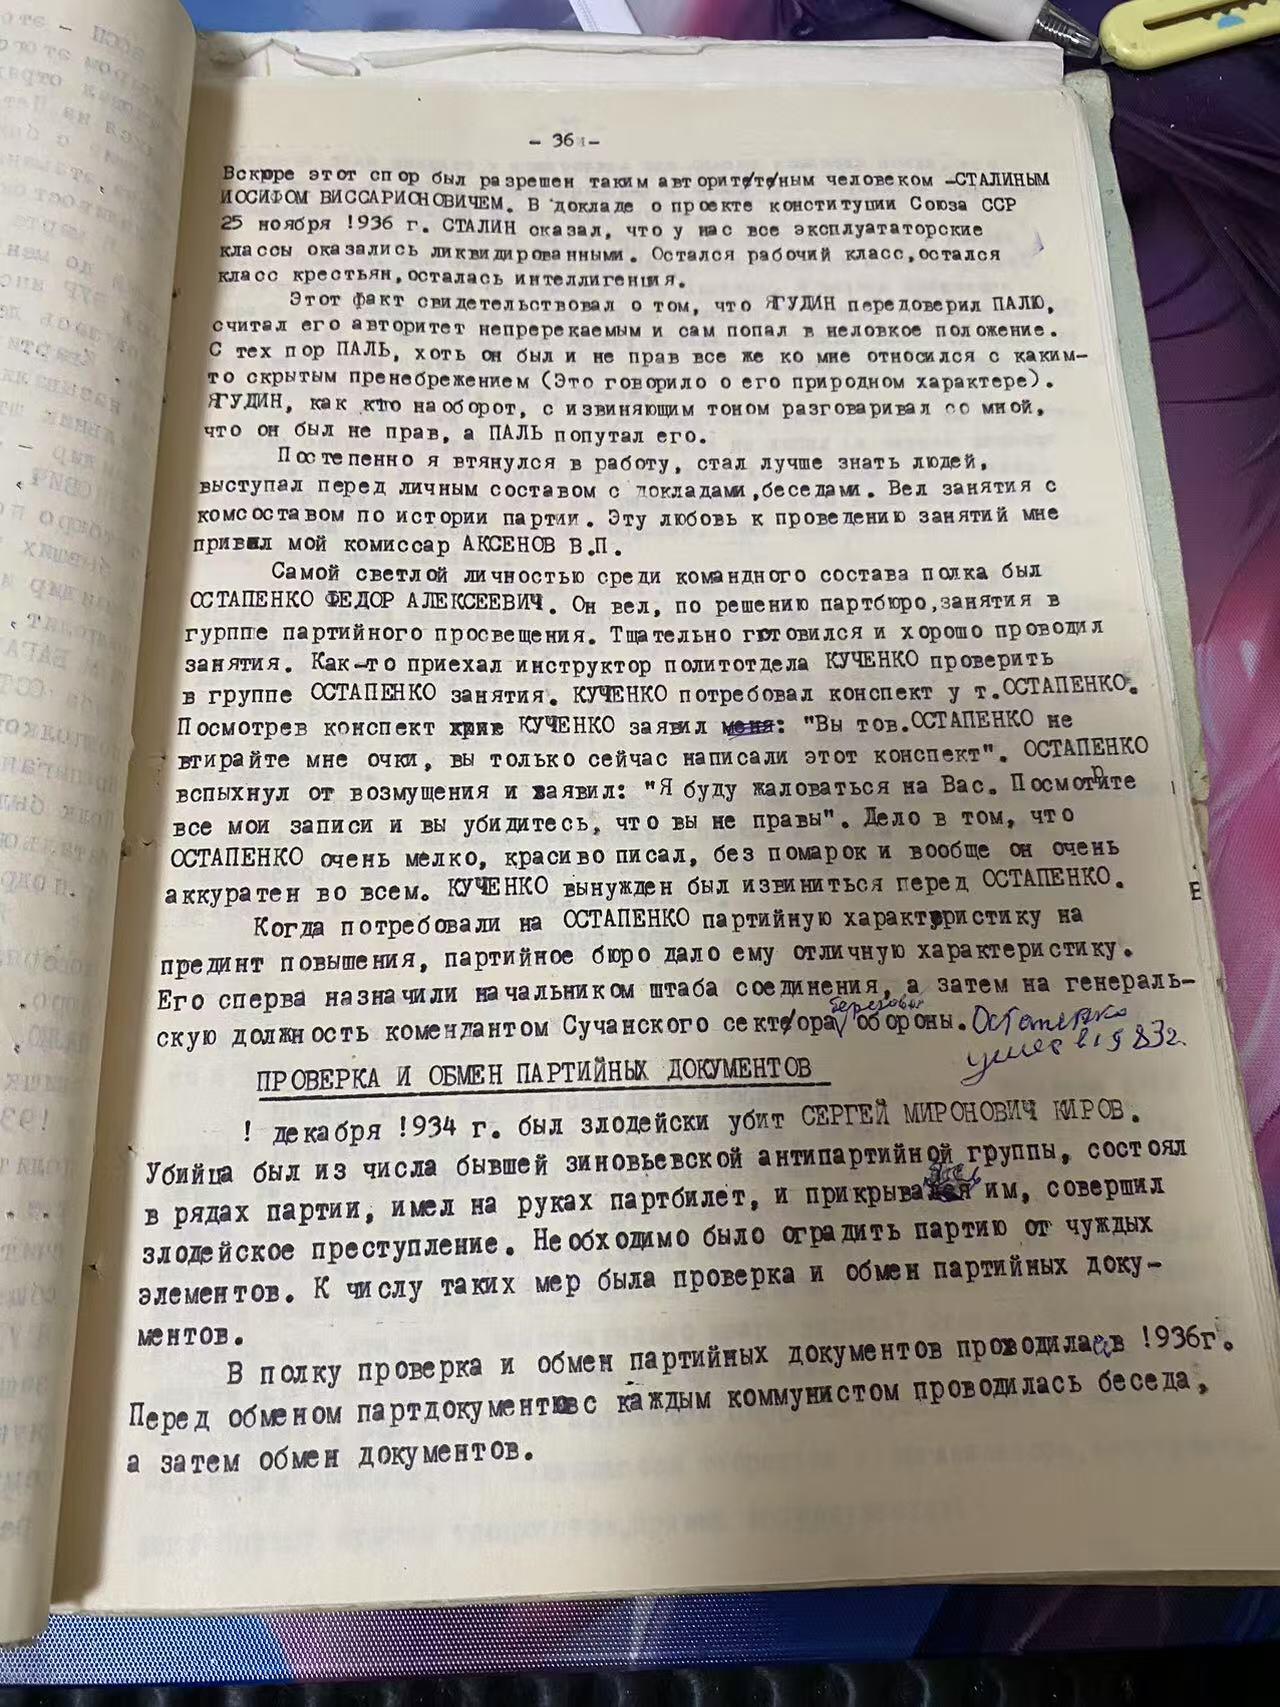 - 36 -
Вскоре этот спор был разрешен таким авторитетным человеком -СТАЛИНЫМ
ИОСИФОМ ВИССАРИОНОВИЧЕМ. В докладе о проекте конституции Союза ССР
25 ноября !936 г. СТАЛИН сказал, что у нас все эксплуататорские
классы оказались ликвидированными. Остался рабочий класс,остался
класс крестьян,осталась интеллигенция.
Этот факт свидетельствовал о том, что ЯГУДИН передоверил ПАЛЮ,
считал его авторитет непререкаемым и сам попал в неловкое положение.
С тех пор ПАЛЬ, хоть он был и не прав все же ко мне относился с каким-
то скрытым пренебрежением (Это говорило о его природном характере).
ЯГУДИН, как кто наоборот, с извиняющим тоном разговаривал со мной,
что он был не прав, а ПАЛЬ попутал его.
Постепенно я втянулся в работу, стал лучше знать людей,
выступал перед личным составом с докладами,беседами. Вел занятия с
комсоставом по истории партии. Эту любовь к проведению занятий мне
привил мой комиссар АКСЕНОВ В.П.
Самой светлой личностью среди командного состава полка был
ОСТАПЕНКО ФЕДОР АЛЕКСЕЕВИЧ. Он вел, по решению партбюро,занятия в
гурппе партийного просвещения. Тщательно готовился и хорошо проводил
занятия. Как-то приехал инструктор политотдела КУЧЕНКО проверить
в группе ОСТАПЕНКО занятия. КУЧЕНКО потребовал конспект у т.ОСТАПЕНКО.
Посмотрев конспект КУЧЕНКО заявил: "Вы тов.ОСТАПЕНКО не
втирайте мне очки, вы только сейчас написали этот конспект". ОСТАПЕНКО
вспыхнул от возмущения и заявил: "Я буду жаловаться на Вас. Посмотрите
все мои записи и вы убидитесь, что вы не правы". Дело в том, что
ОСТАПЕНКО очень мелко, красиво писал, без помарок и вообще он очень
аккуратен во всем. КУЧЕНКО вынужден был извиниться перед ОСТАПЕНКО.
Когда потребовали на ОСТАПЕНКО партийную характеристику на
прединт повышения, партийное бюро дало ему отличную характеристику.
Его сперва назначили начальником штаба соединения, а затем на генераль-
скую должность комендантом Сучанского сектора береговой обороны. Остапенко
умер в 1983г.
ПРОВЕРКА И ОБМЕН ПАРТИЙНЫХ ДОКУМЕНТОВ
! декабря !934 г. был злодейски убит СЕРГЕЙ МИРОНОВИЧ КИРОВ.
Убийца был из числа бывшей зиновьевской антипартийной группы, состоял
в рядах партии, имел на руках партбилет, и прикрываясь им, совершил
злодейское преступление. Необходимо было оградить партию от чуждых
элементов. К числу таких мер была проверка и обмен партийных доку-
ментов.
В полку проверка и обмен партийных документов проводилась в !936г.
Перед обменом партдокументов с каждым коммунистом проводилась беседа,
а затем обмен документов.